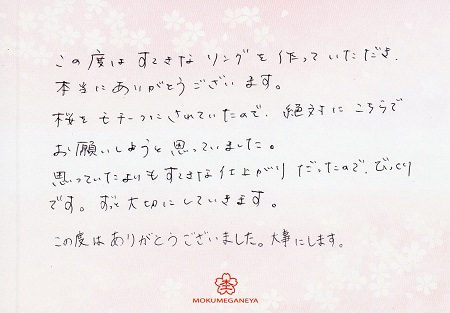 この度はすてきなリングを作っていただき、
本当にありがとうございます。
桜をモチーフにされていたので、絶対にこちらで
お願いしようと思っていました。
思っていたよりもすてきな仕上がりだったので、びっくり
です。ずっと大切にしていきます。
この度はありがとうございました。大事にします。
MOKUMEGANEYA